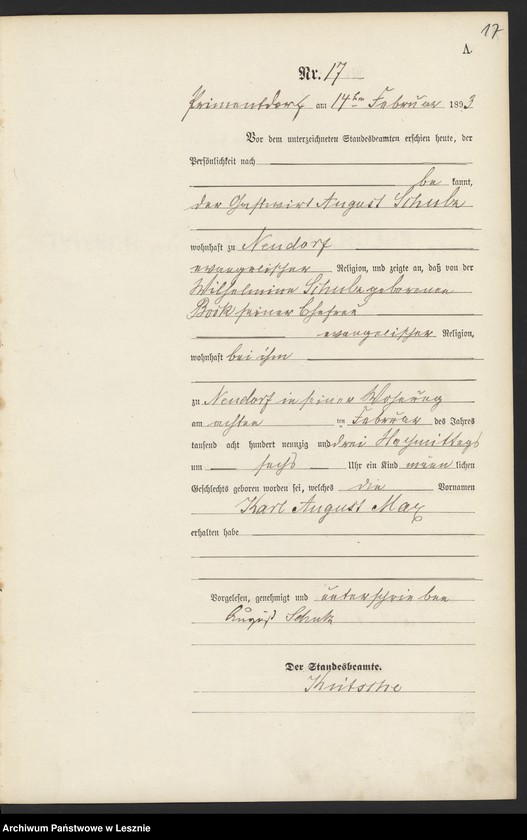 17
A.
Nr. 17
Primentdorf am 14ten Februar 1893
Vor dem unterzeichneten Standesbeamten erschien heute, der
Persönlichkeit nach
be kannt,
der Gastwirt August Schulz
wohnhaft zu Neudorf
evangelischer Religion, und zeigte an, daß von der
Wilhelmine Schulz geborenen
Bock seiner Ehefrau
evangelischer Religion,
wohnhaft bei ihm
zu Neudorf in seiner Wohnung
am achten ten Februar des Jahres
tausend acht hundert neunzig und drei Nachmittags
um sechs Uhr ein Kind männ lichen
Geschlechts geboren worden sei, welches die Vornamen
Karl August Max
erhalten habe
Vorgelesen, genehmigt und unterschrieben
August Schulz
Der Standesbeamte.
Archiwum Państwowe w Lesznie